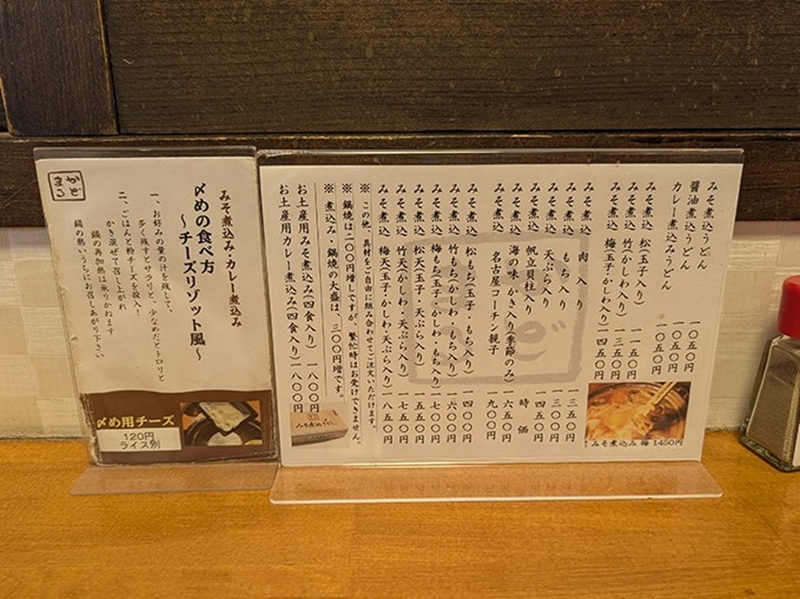 かど
まる
みそ煮込み・カレー煮込み
〆めの食べ方
～チーズリゾット風～
一、お好みの量の汁を残して、
多く残すとサラリと、少なめだとトロリと
二、ごはんと粉チーズを投入！
かき混ぜて召し上がれ
鍋の再加熱は承りかねます
鍋の熱いうちにお召しあがり下さい
〆め用チーズ
120円
ライス別
みそ煮込うどん 一〇五〇円
醤油煮込うどん 一〇五〇円
カレー煮込みうどん 一〇五〇円
みそ煮込 松(玉子入り) 一一五〇円
みそ煮込 竹(かしわ入り) 一三五〇円
みそ煮込 梅(玉子・かしわ入り) 一四五〇円
みそ煮込 肉入り 一三五〇円
みそ煮込 もち入り 一三〇〇円
みそ煮込 天ぷら入り 一四五〇円
みそ煮込 帆立貝柱入り 時価
みそ煮込 海の味・かき入り(季節のみ) 一六五〇円
みそ煮込 名古屋コーチン親子 一九〇〇円
みそ煮込 松もち(玉子・もち入り) 一四〇〇円
みそ煮込 竹もち(かしわ・もち入り) 一六〇〇円
みそ煮込 梅もち(玉子・かしわ・もち入り) 一七〇〇円
みそ煮込 松天(玉子・天ぷら入り) 一五五〇円
みそ煮込 竹天(かしわ・天ぷら入り) 一七五〇円
みそ煮込 梅天(玉子・かしわ・天ぷら入り) 一八五〇円
※ この他、具材をご自由に組み合わせてご注文いただけます。
※ 鍋焼は二〇〇円増しですが、繁忙時はお受けできません。
※ 煮込み・鍋焼の大盛は、三〇〇円増です。
お土産用みそ煮込み(四食入り) 一八〇〇円
お土産用カレー煮込み(四食入り) 一八〇〇円
みそ煮込み 梅 1450円